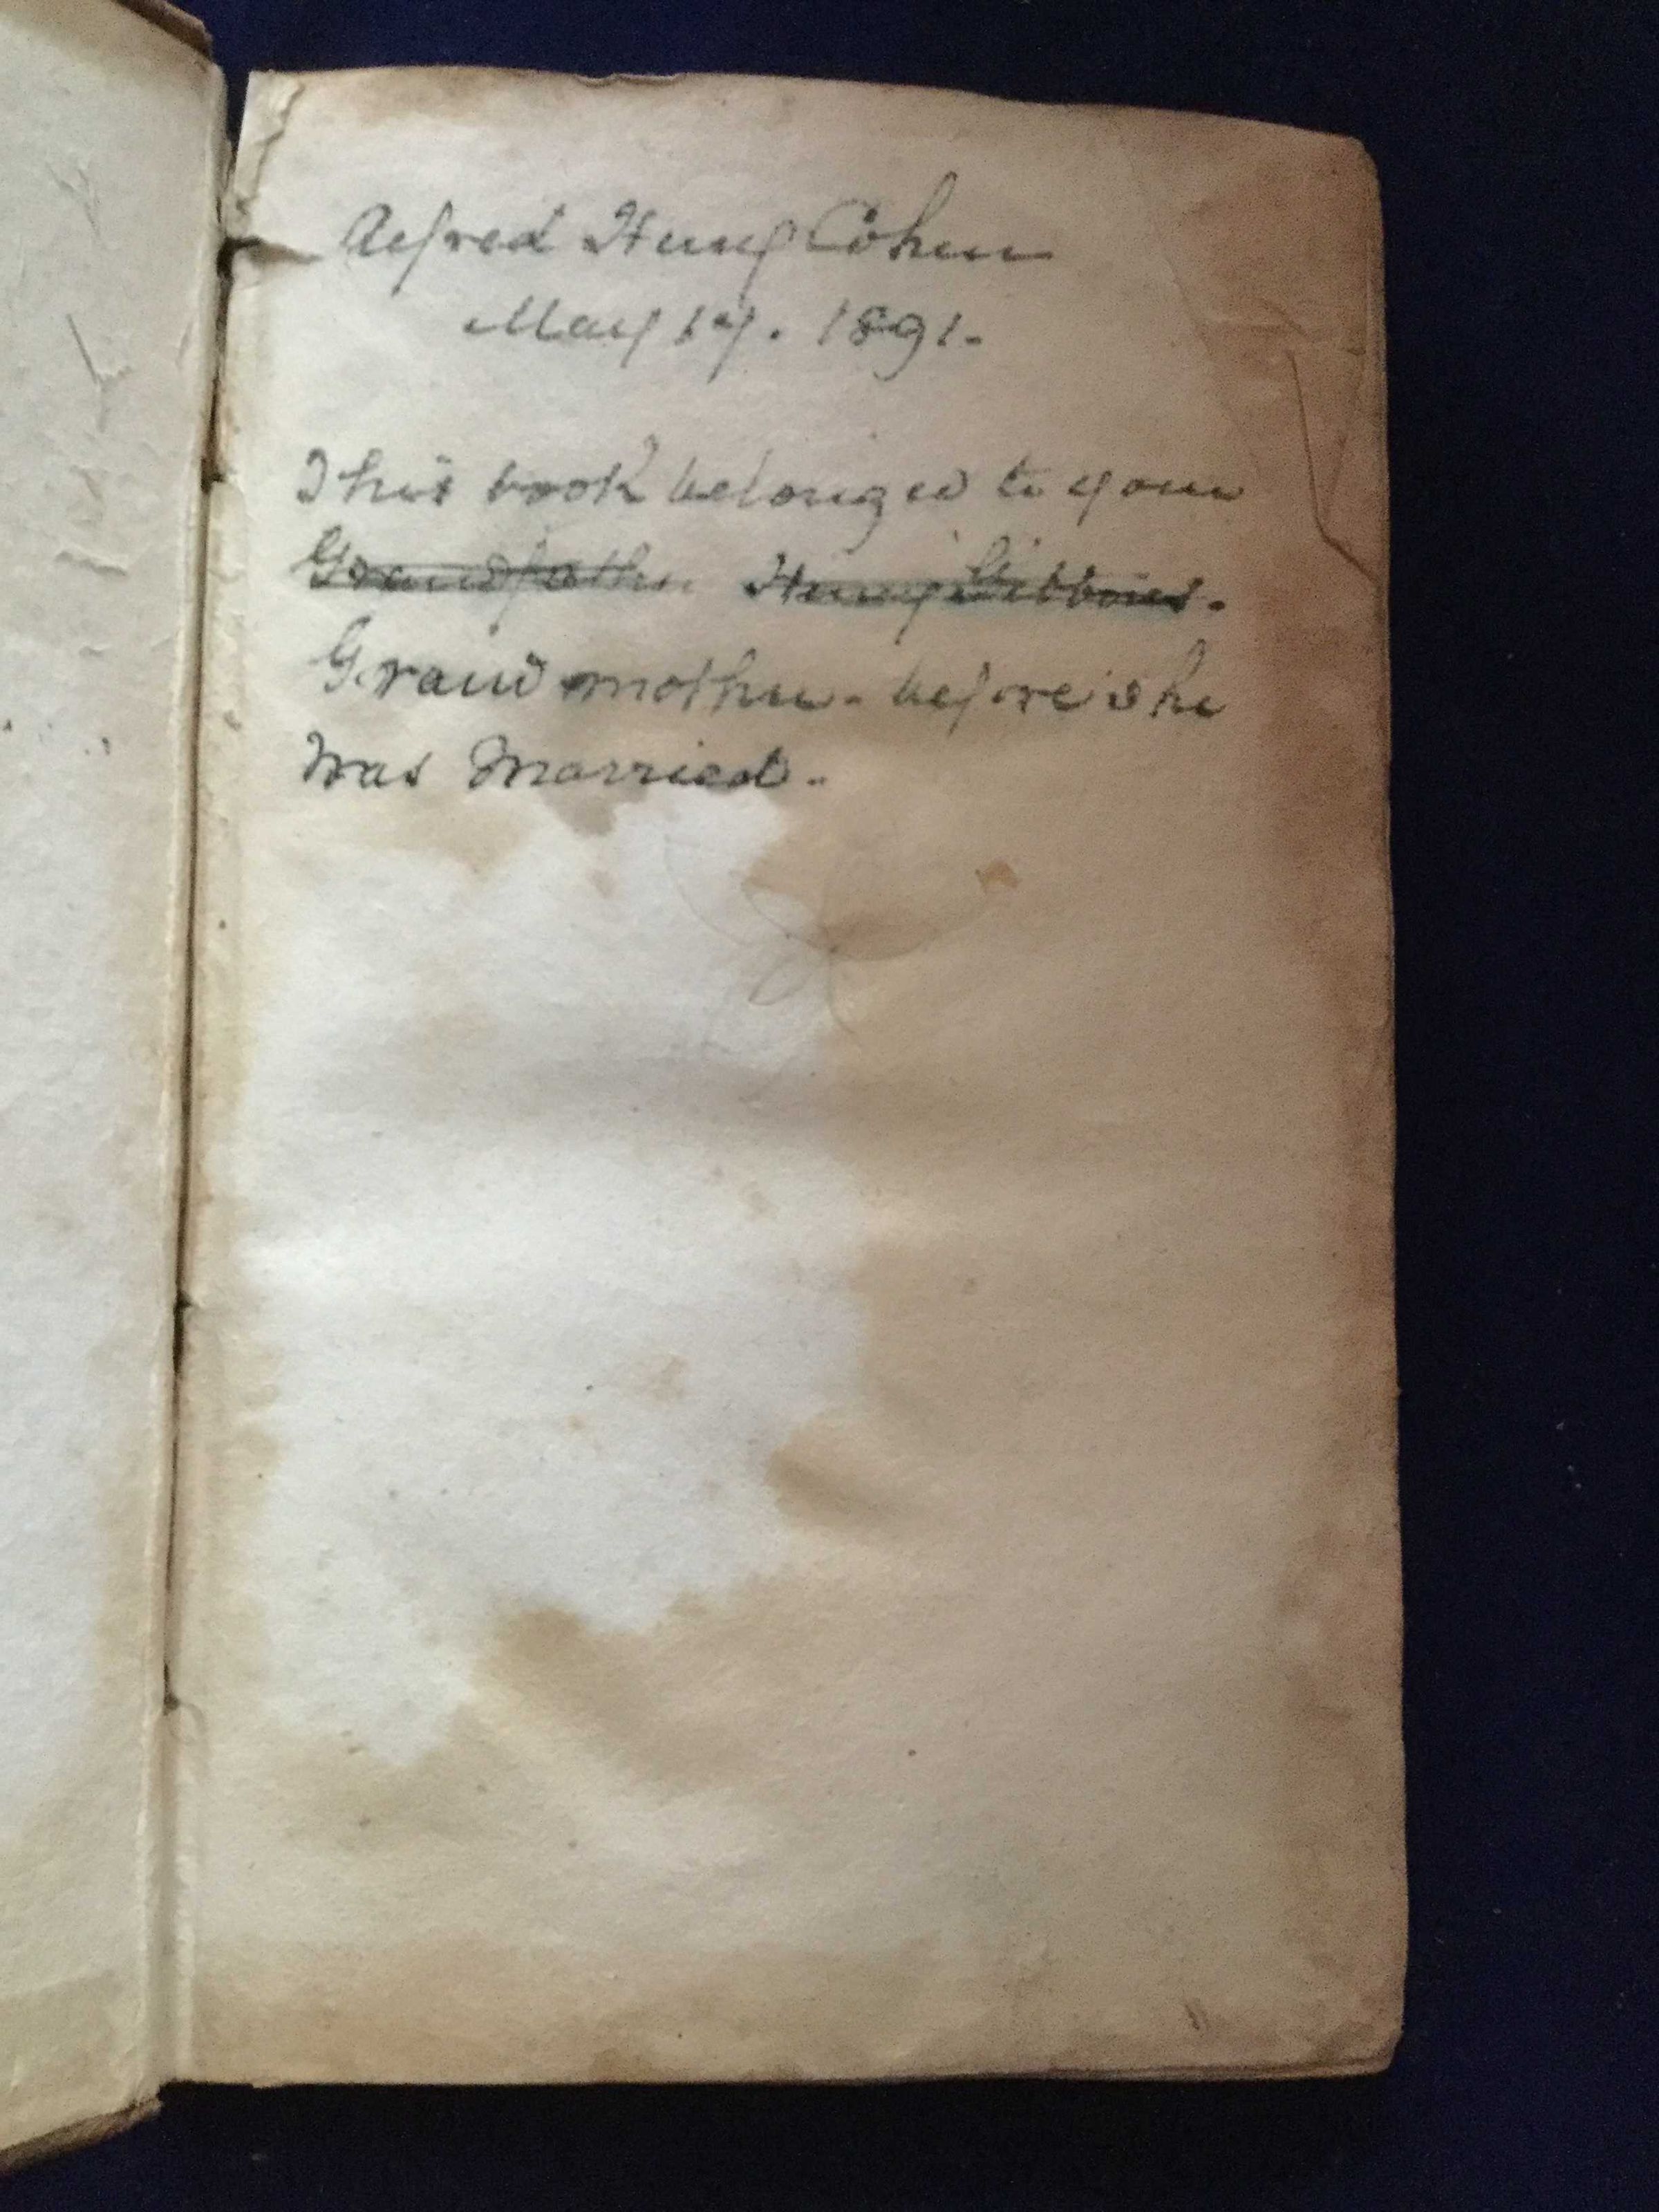 Alfred Henry Cohen
May 17. 1891.
This book belonged to your
Grandfather Henry Gibbons.
Grandmother - before she
Was Married.